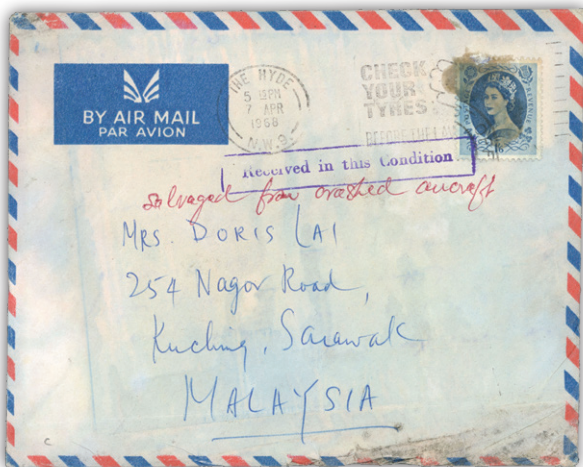 BY AIR MAIL
PAR AVION
THE HYDE
5 PM
7 APR
1968
N.W.9.
CHECK
YOUR
TYRES
BEFORE THE LAW
REVENUE
Received in this Condition
salvaged from crashed aircraft
MRS. DORIS LAI
254 Nagor Road,
Kuching, Sarawak
MALAYSIA